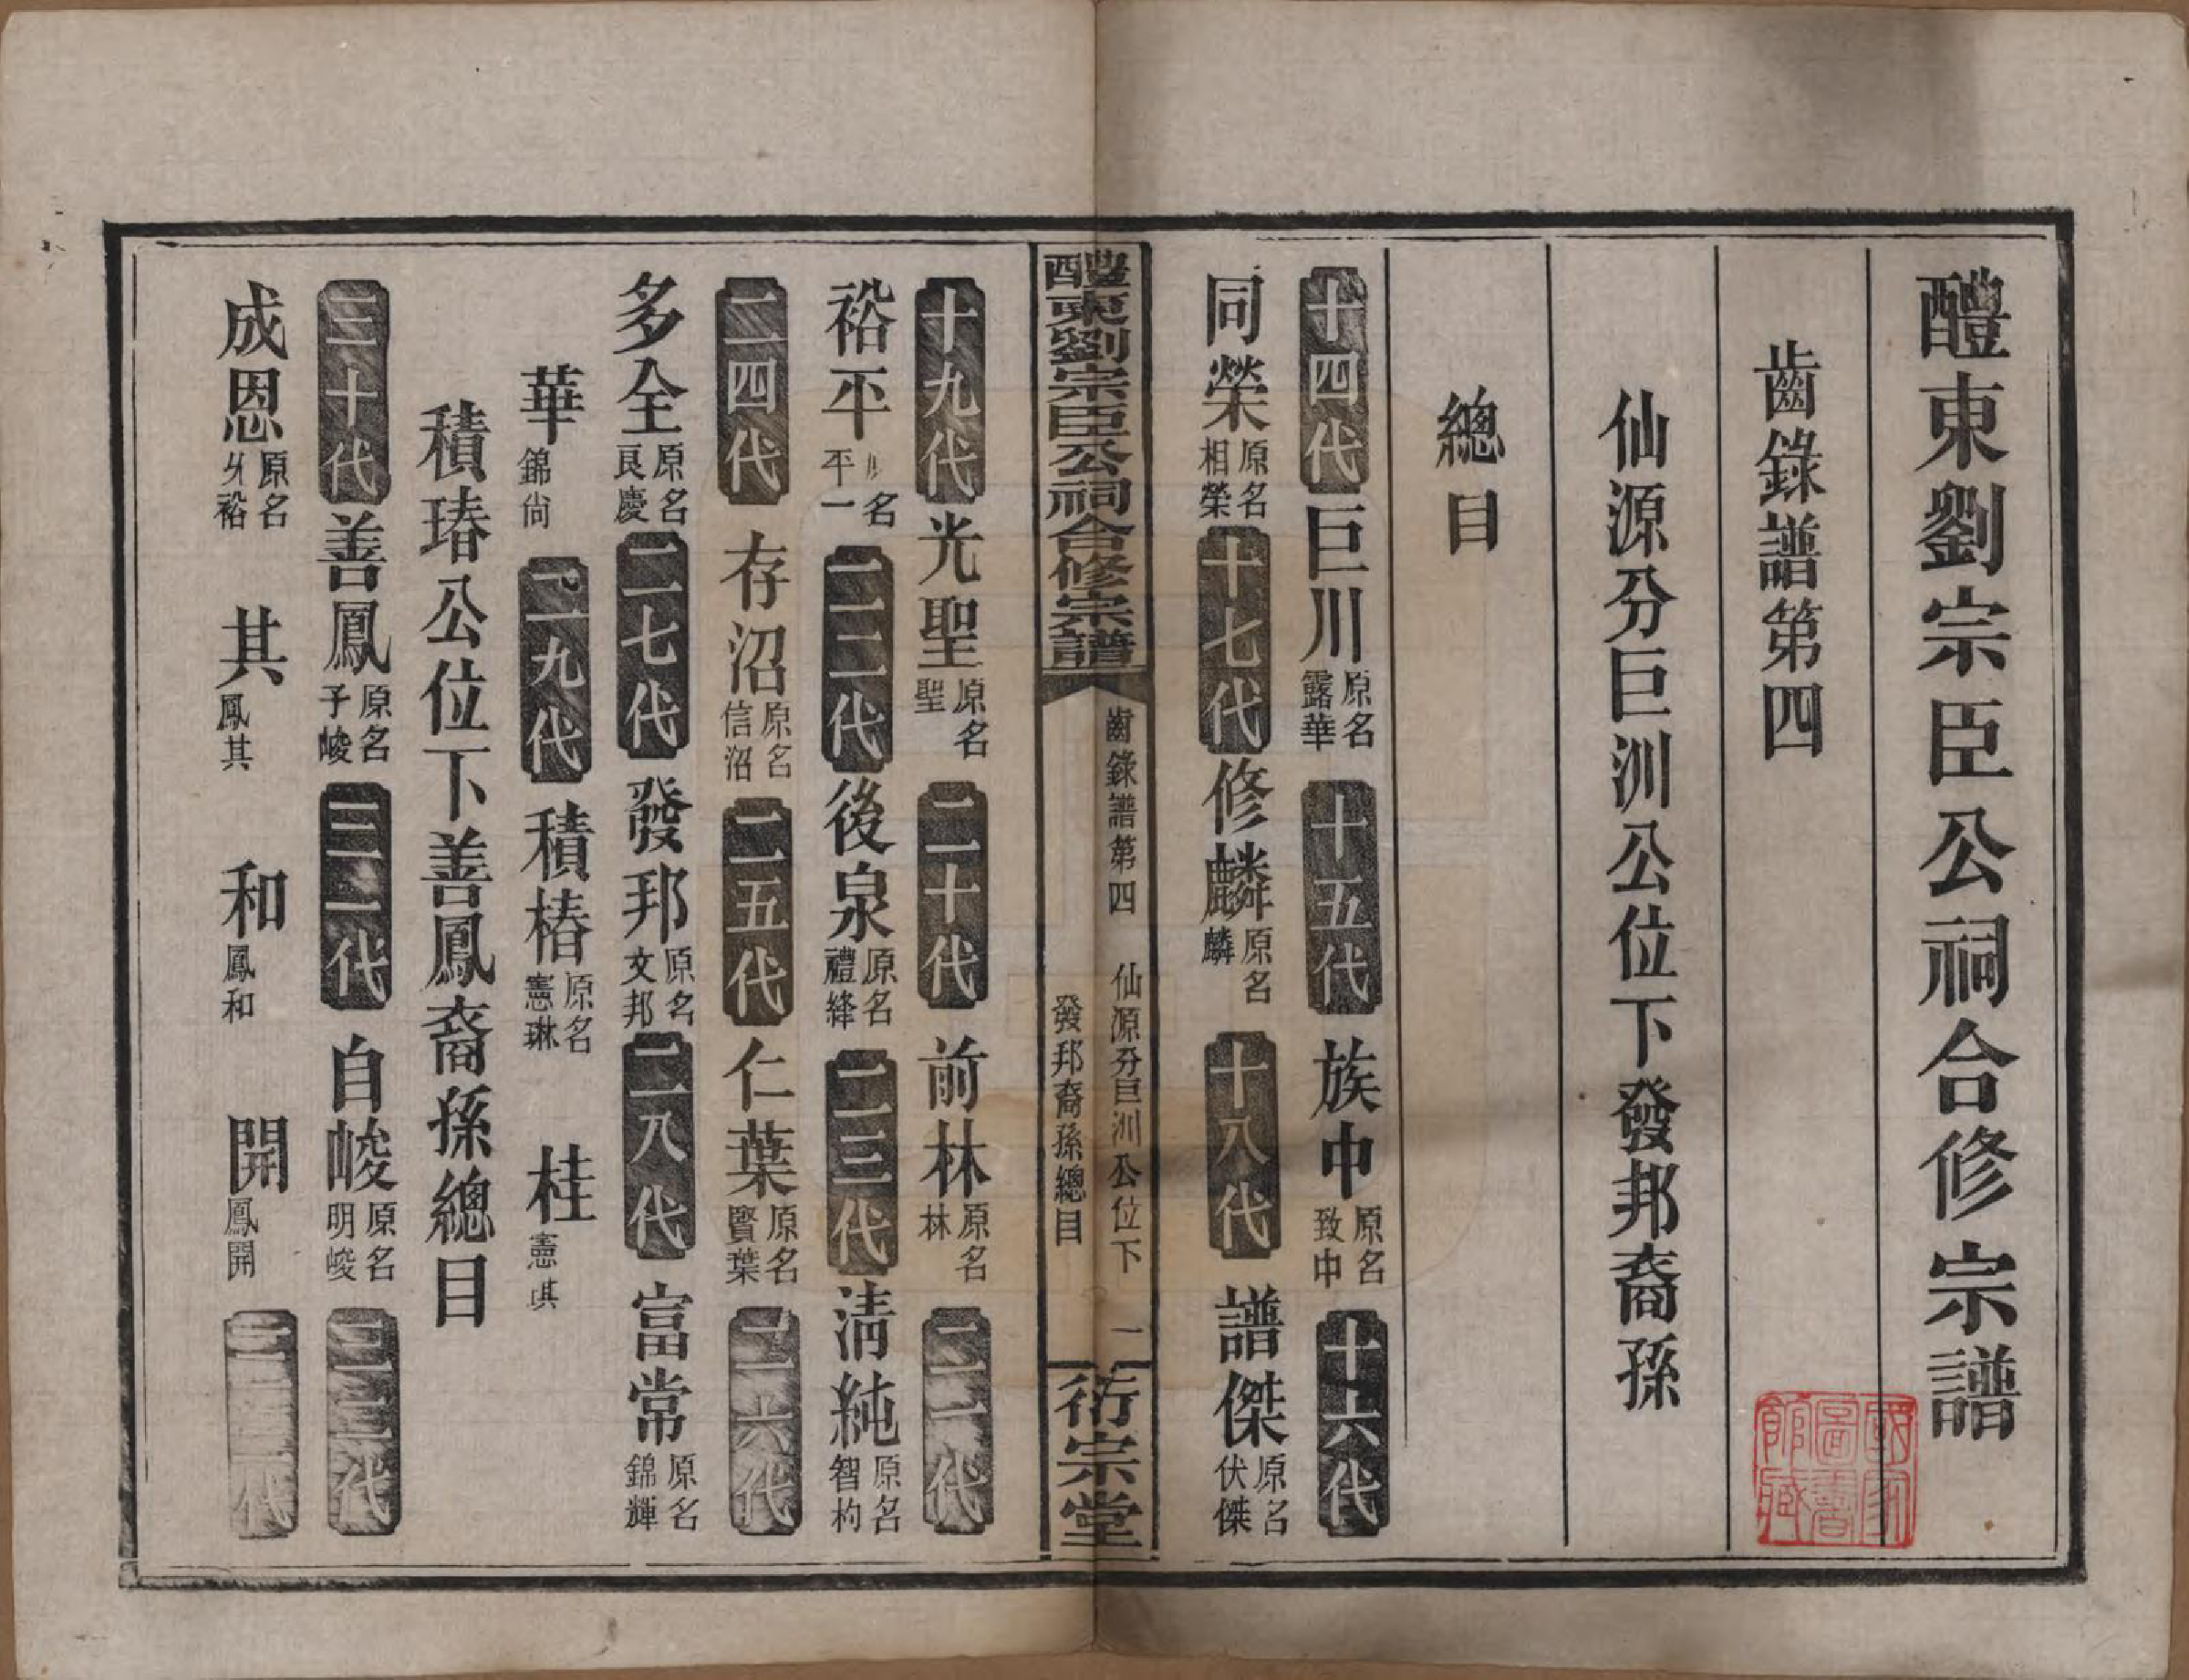 醴東劉宗臣公祠合修宗譜
齒錄譜第四
仙源分巨洲公位下發邦裔孫
總目
十四代 巨川 原名露華 十五代 族中 原名致中 十六代
同榮 原名相榮 十七代 修麟 原名麟 十八代 譜傑 原名伏傑
醴東劉宗臣公祠合修宗譜 齒錄譜第四 仙源分巨洲公位下 發邦裔孫總目 一 衍宗堂
十九代 光聖 原名聖 二十代 前林 原名林 二一代
裕平 名平一 二二代 後泉 原名禮絳 二三代 清純 原名智枃
二四代 存沼 原名信沼 二五代 仁葉 原名賢葉 二六代
多全 原名良慶 二七代 發邦 原名文邦 二八代 富常 原名錦輝
華 錦尙 二九代 積椿 原名憲琳 桂 憲琪
積瑃公位下善鳳裔孫總目
三十代 善鳳 原名子峻 三一代 自峻 原名明峻 三二代
成恩 原名裕 其 鳳其 和 鳳和 開 鳳開 三三代
國家圖書館藏